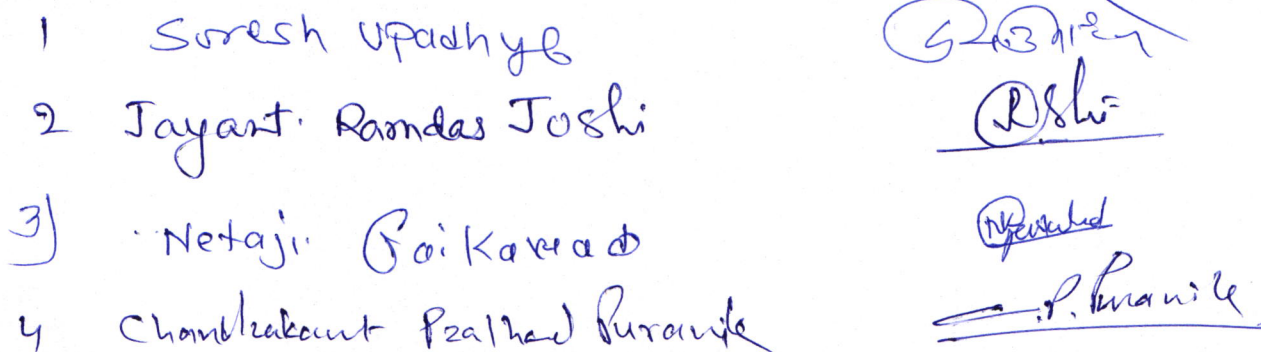 1 Suresh Upadhye
2 Jayant. Ramdas Joshi
3) Netaji Gaikawad
4 Chandrakant Pralhad Puranik C.P. Puranik